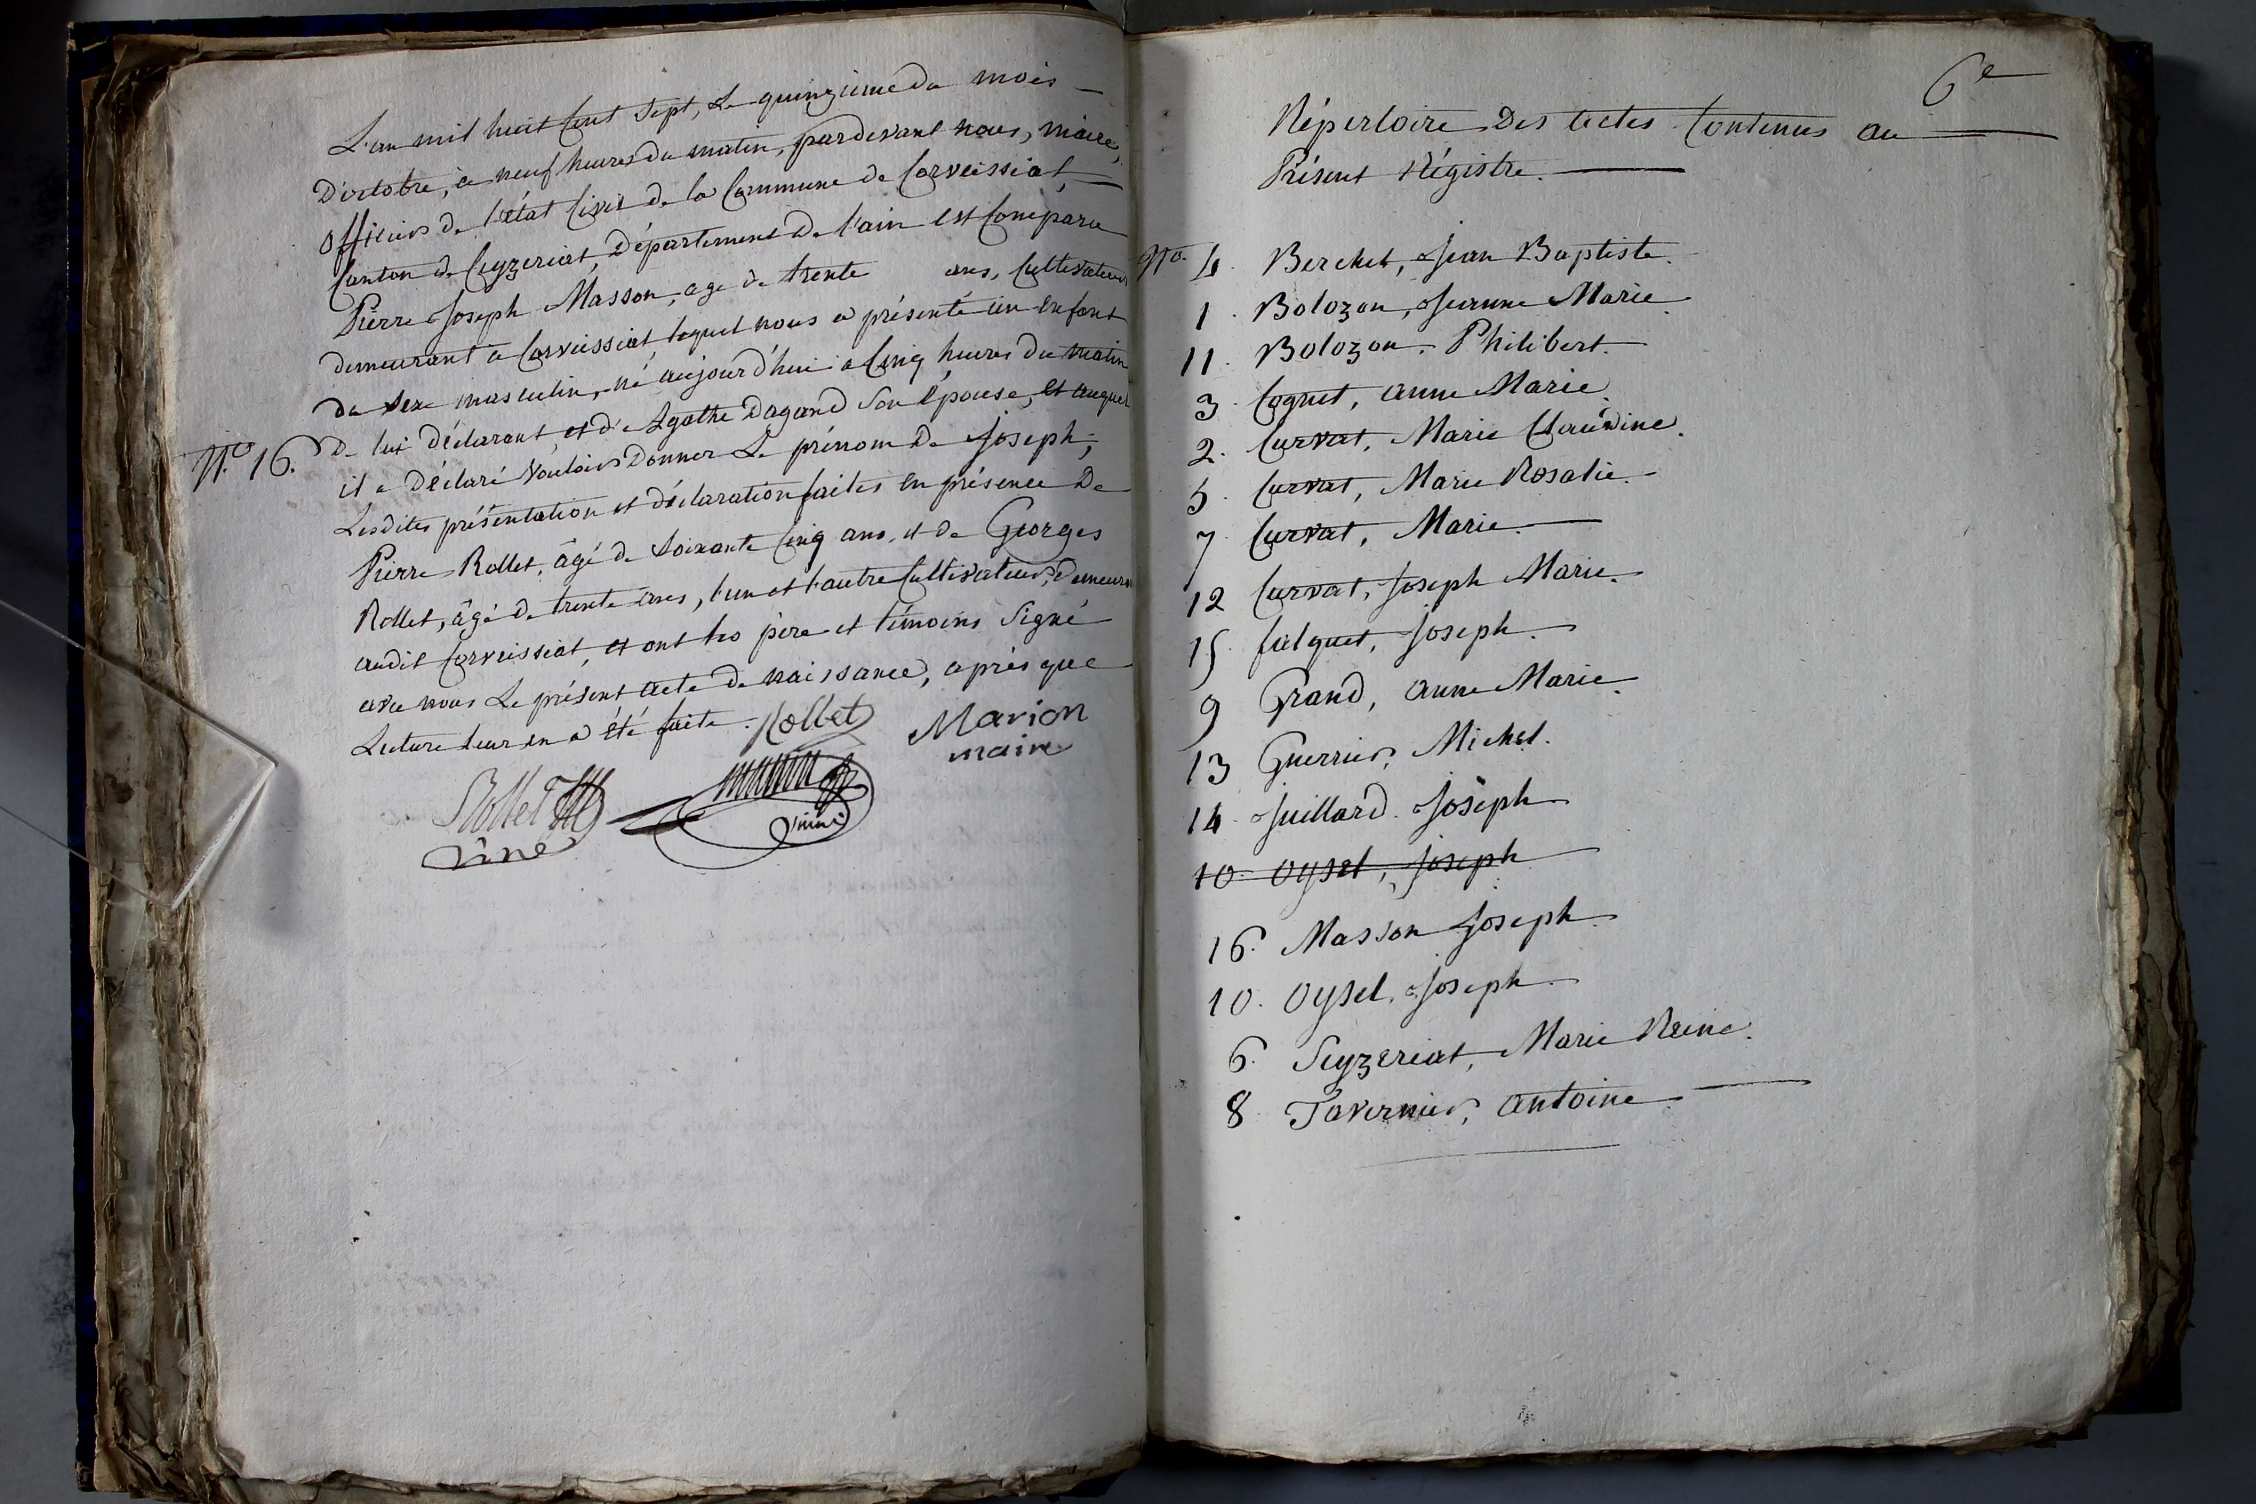 L'an mil huit Cent Sept, Le quinzieme du mois
D'octobre, à neuf heures du matin, pardevant nous, maire,
officier de l'état Civil de la Commune de Corveissiat,
Canton de Ceyzeriat, Département de l'ain est Comparu
Pierre Joseph Masson, age de trente ans, Cultivateur
demeurant à Corveissiat lequel nous a présenté un enfant
du sexe masculin, né aujourd'hui à Cinq heures du matin
N.º 16. De lui déclarant et d'Agathe Dagand Son épouse, et auquel
il a Déclaré Vouloir Donner Le prénom De Joseph;
Lesdites présentation et déclaration faites en présence De
Pierre Rollet, âgé de soixante Cinq ans, et de Georges
Rollet, âgé de trente ans, l'un et l'autre Cultivateurs, demeurant
audit Corveissiat, et ont les père et témoins Signé
avec nous Le présent acte de naissance, après que
Lecture leur en a été faite.
Rollet
Marion
maire
Rollet
6e
Répertoire Des actes Contenus au
Présent Régistre.
Nº. 4. Berchet, Jean Baptiste.
1. Bolozon, Jeanne Marie.
11. Bolozon. Philibert.
3. Cognet, anne Marie.
2. Curvat, Marie Claudine.
5. Curvat, Marie Rosalie.
7. Curvat, Marie.
12 Curvat, Joseph Marie.
15. falquet, Joseph.
9 Grand, anne Marie.
13 Guerrier, Michel.
14. Juillard. Joseph
10. Oysel, Joseph
16. Masson Joseph.
10. Oysel. Joseph.
6. Seyzeriat, Marie Reine.
8 Tavernier, antoine.